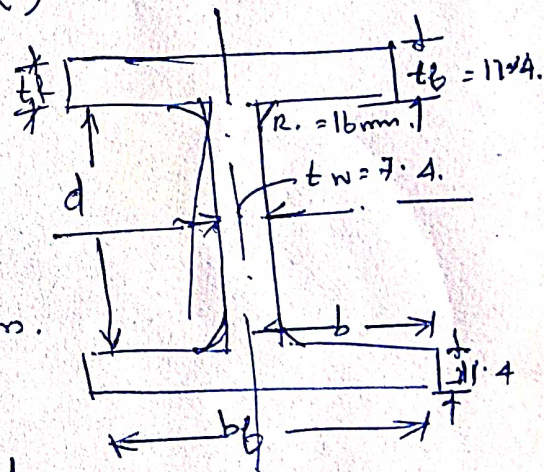 tf
tf = 11.4.
R. = 16mm.
tw = 7.4.
d
b
11.4
bf